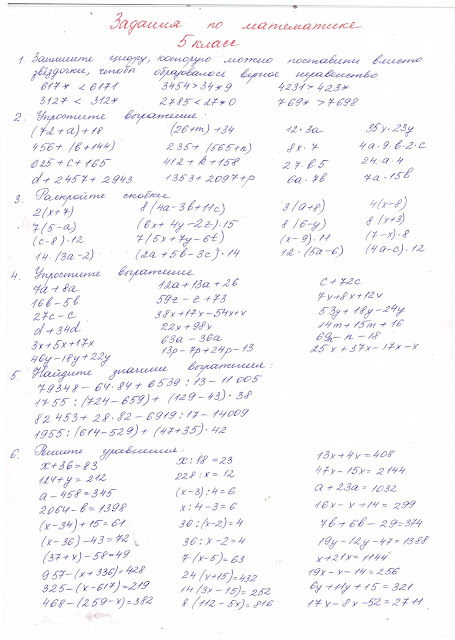 Задания по математике
5 класс
1. Запишите цифру, которую можно поставить вместо
звёздочки, чтобы образовалось верное неравенство
617* < 6171 3454 > 34*9 4231 > 423*
3127 < 312* 2785 < 27*0 769* > 7698
2. Упростите выражение:
(72+a)+18 (26+m)+34 12·3a 35x·23y
456+(b+144) 235+(565+n) 8x·7 4a·9·b·2·c
025+c+165 412+k+158 27·b·5 24·a·4
d+2457+2943 1353+2097+p 6a·7b 7a·15b
3. Раскройте скобки
2(x+7) 8(4a-3b+11c) 3(a+8) 4(x-8)
7(5-a) (6x+4y-2z)·15 8(6-y) 8(x+3)
(c-8)·12 7(5x+7y-6t) (x-9)·11 (7-x)·8
14·(3a-2) (2a+5b-3c)·14 12·(5a-6) (4a-c)·12
4. Упростите выражение
7a+8a 12a+13a+26 c+72c
16b-5b 59z-z+73 7x+8x+12x
27c-c 38x+17x-54x+x 53y+18y-24y
d+34d 22x+98x 14m+15m+16
3x+5x+17x 63a-36a 69n-n-18
46y-18y+22y 13p-7p+24p-13 25x+37x-17x-x
5. Найдите значение выражения:
79348-64·84+6539:13-11005
1755:(724-659)+(129-43)·38
82453+28·82-6919:17-14009
1955:(614-529)+(47+35)·42
6. Решите уравнения:
x+36=83 x:18=23 13x+4x=408
124+y=212 228:x=12 47x-15x=2144
a-458=345 (x-3):4=6 a+23a=1032
2064-b=1398 x:4-3=6 16x-x+14=299
(x-34)+15=61 36:(x-2)=4 7b+6b-29=374
(x-36)-43=72 36:x-2=4 19y-12y-47=1388
(37+x)-58=49 7(x-5)=63 x+21x=1144
957-(x+336)=428 24(x+15)=432 19x-x-14=256
325-(x-617)=219 14(3x-15)=252 6y+11y+15=321
468-(259-x)=382 8(112-5x)=816 17x-8x-52=2711